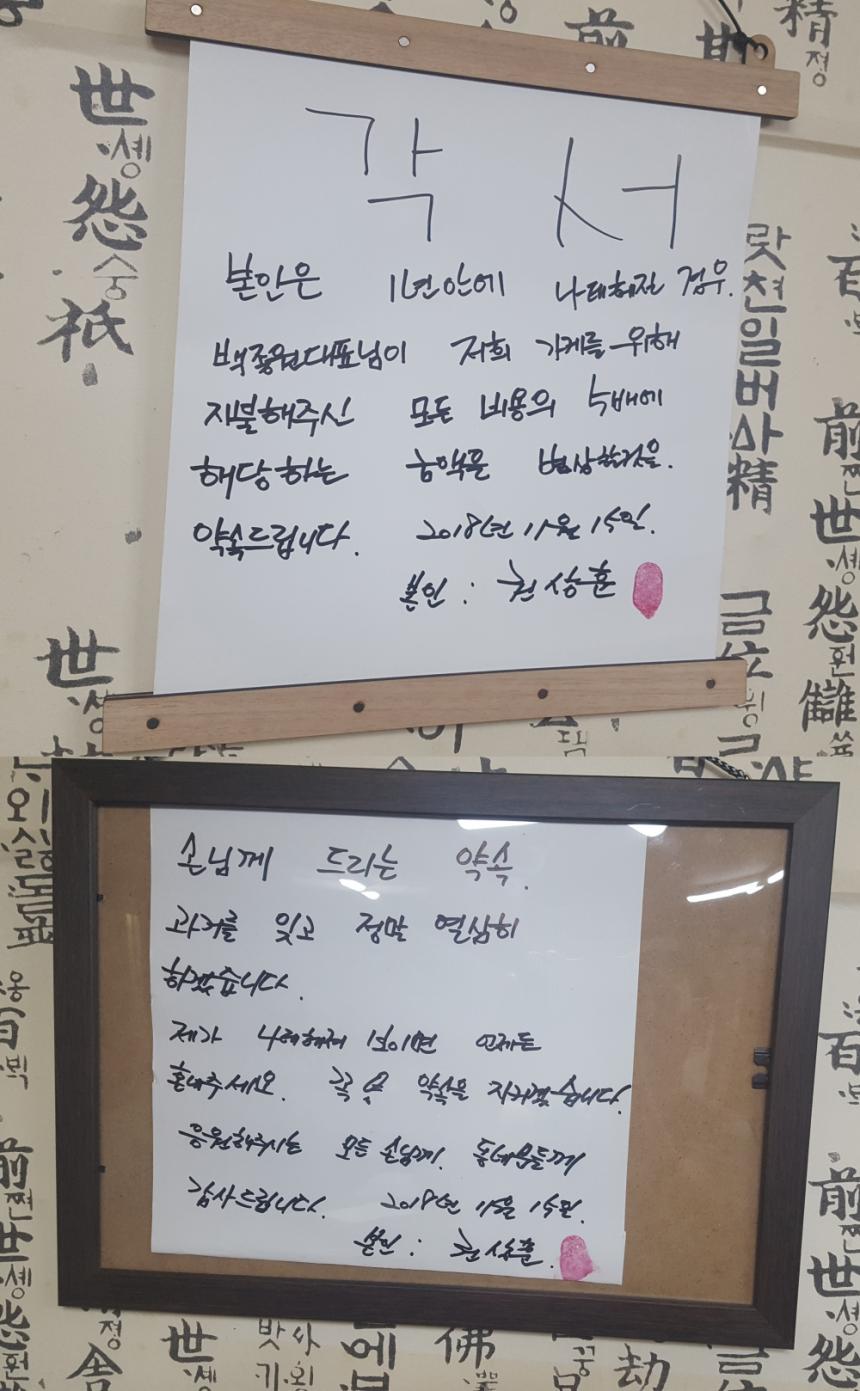 각 서
본인은 1년안에 나태해질 경우.
백종원대표님이 저희 가게를 위해
지불해주신 모든 비용의 5배에
해당하는 금액을 변상할것을.
약속드립니다. 2018년 11월 15일.
본인 : 권상훈
손님께 드리는 약속.
과거를 잊고 정말 열심히
하겠습니다.
제가 나태해져 보이면 언제든
혼내주세요. 꼭 약속을 지키겠습니다.
응원해주시는 모든 손님께. 동네분들께
감사드립니다. 2018년 11월 15일.
본인 : 권상훈.
世
솅
怨
숭
祇
世
솅
前
精
졍
랏
쳔
일
버
精
금
百
前
쪈
世
솅
怨
훤
讎
외
百
前
쪈
世
솅
훤
졍
舍
世
솅
밧
긔
에
佛
劫
금
百
前
쪈
世
솅